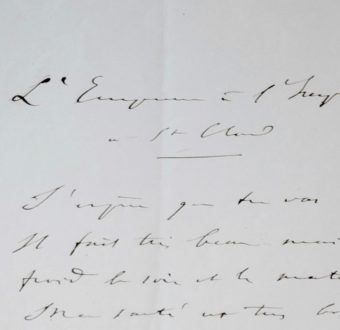 L'Empereur à l'Imp
à St Cloud
J'espère que tu vas
Il fait très beau mais
froid le soir et le matin
Ma santé est très bo